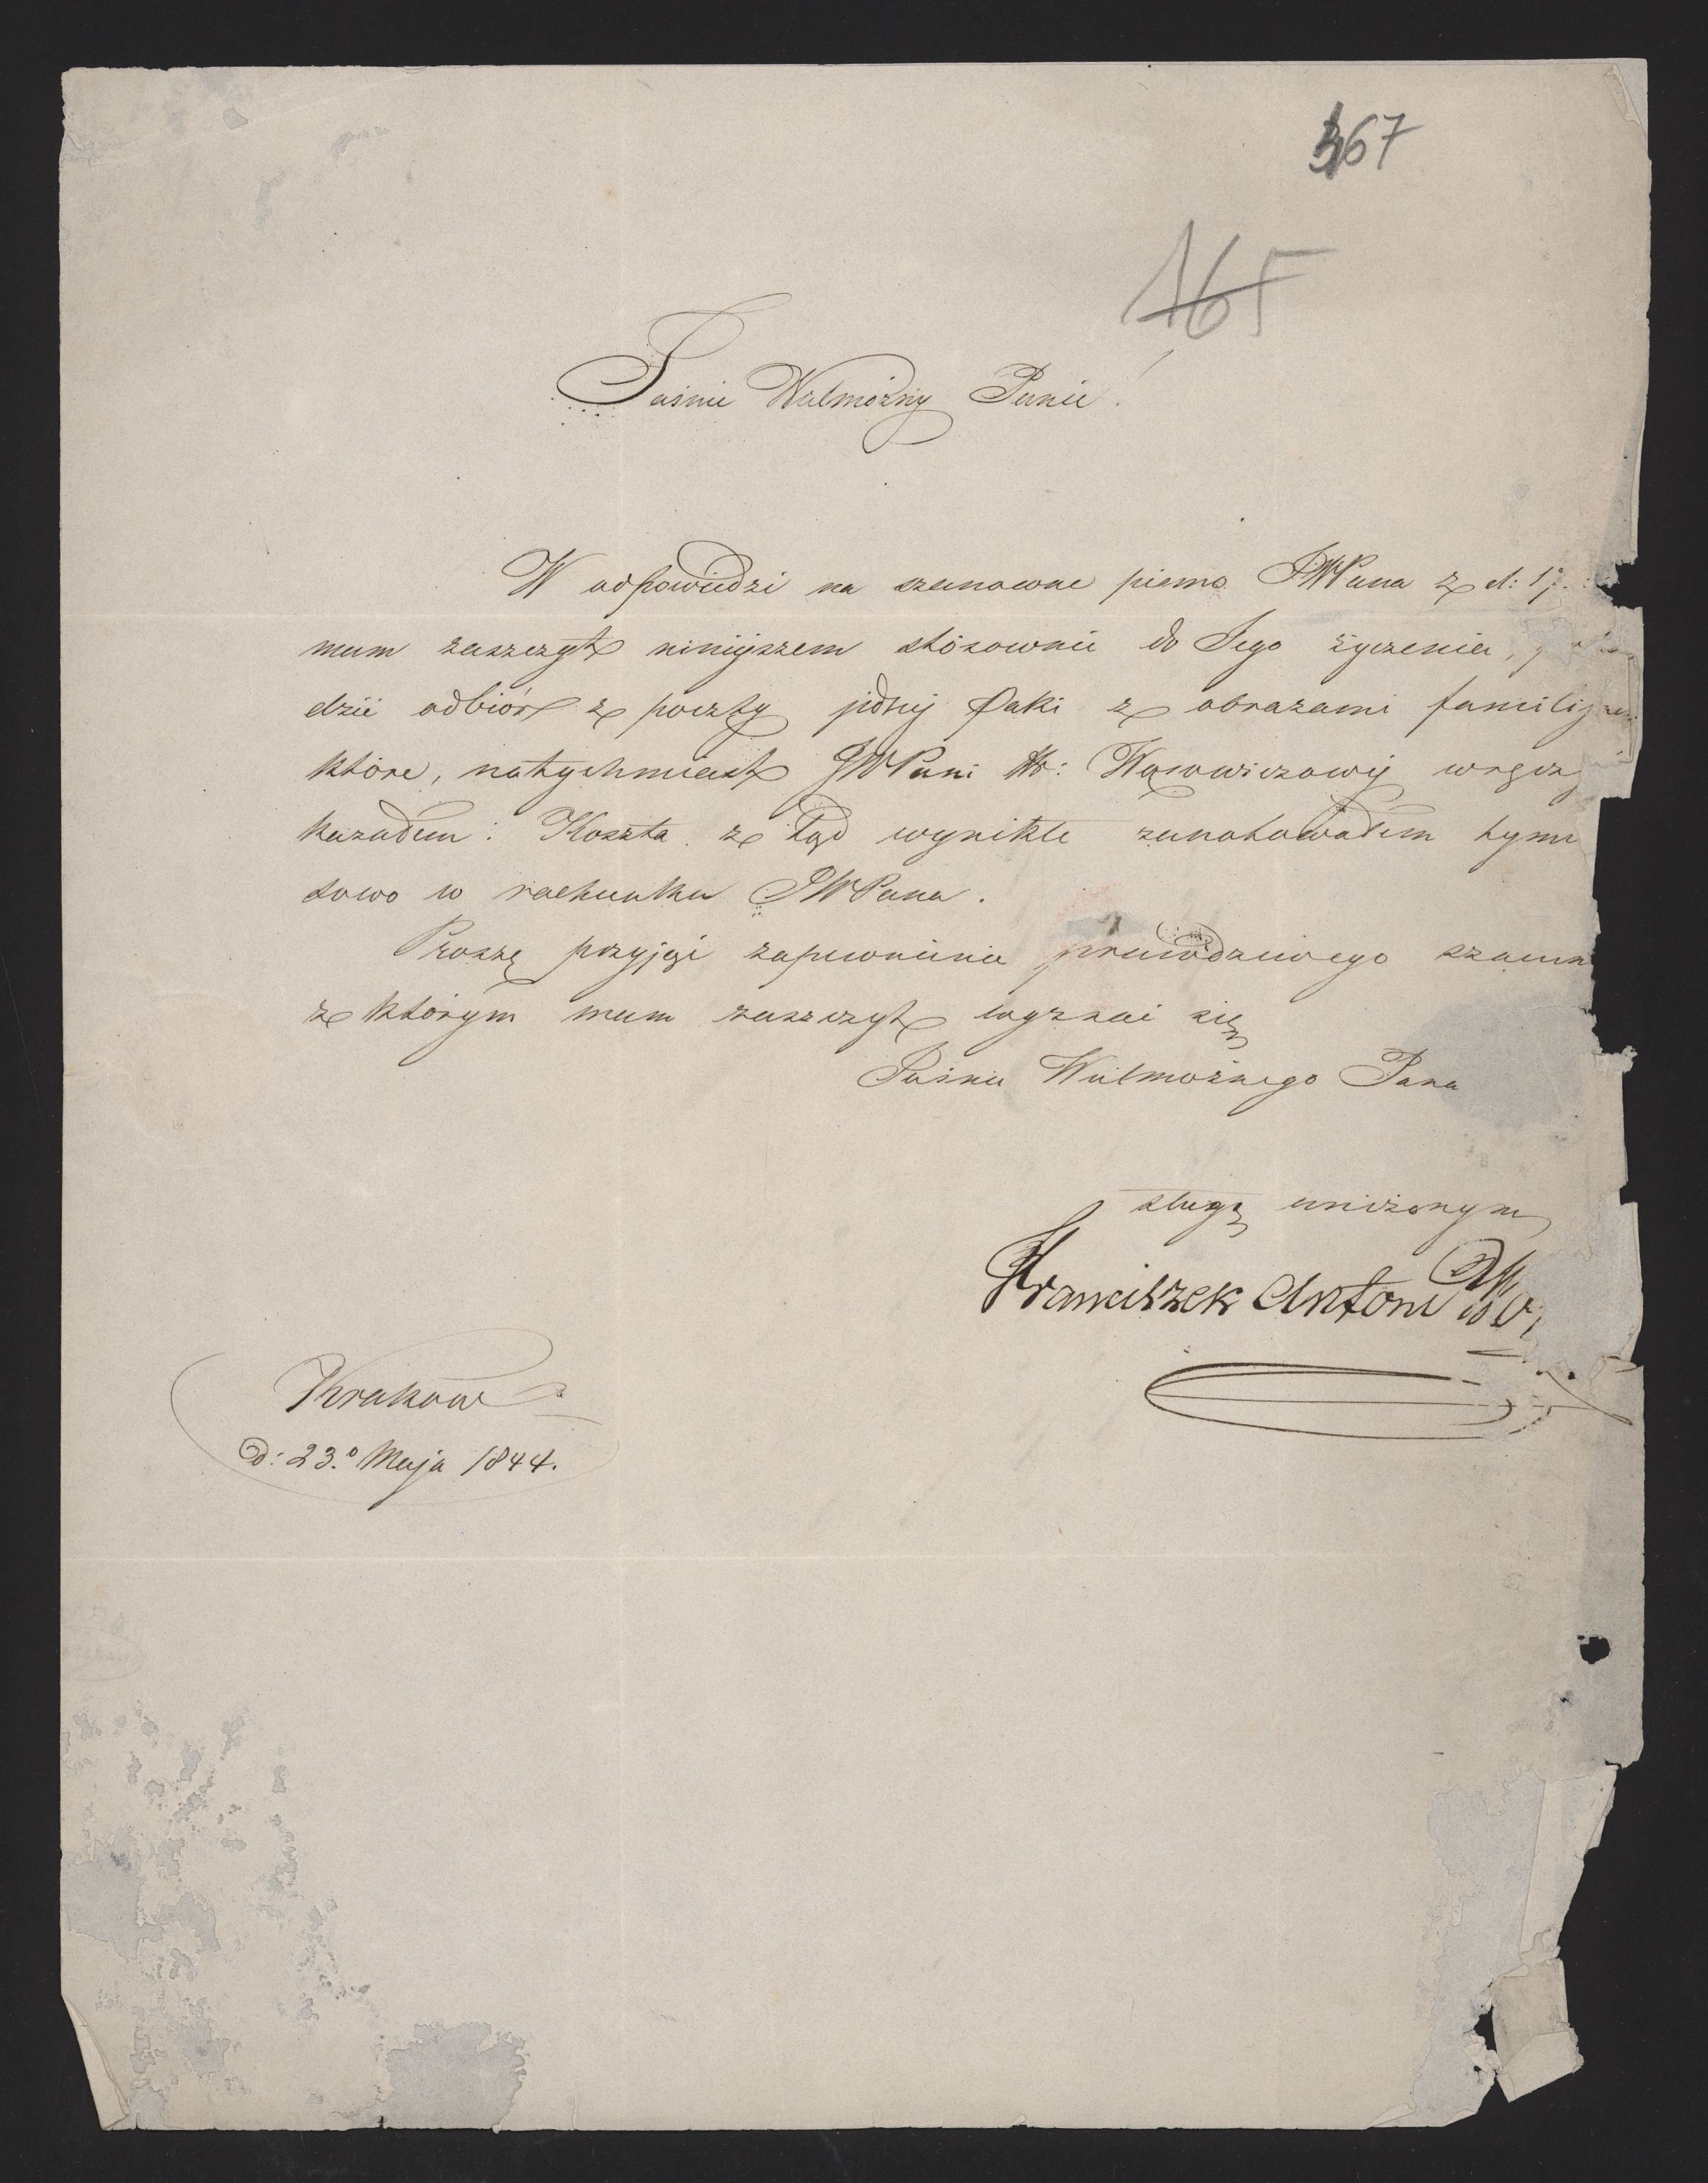 367
165
Jaśnie Wielmożny Panie!
W odpowiedzi na szanowne pismo JWPana z d: 17
mam zaszczyt niniejszem stósownie do Jego życzenia,
dzić odbiór z poczty jednej Paki z obrazami familijnemi
które, natychmiast JWPani Hr: Wąsowiczowej wręczyć
kazałem. Koszta z tąd wynikłe zanotowałem tym
sowo w rachunku JWPana.
Proszę przyjąć zapewnienie prawdziwego szacun
z którym mam zaszczyt wyznać się
Jaśnie Wielmożnego Pana
sługą uniżonym
Franciszek Antoni
Kraków
d: 23.° Maja 1844.